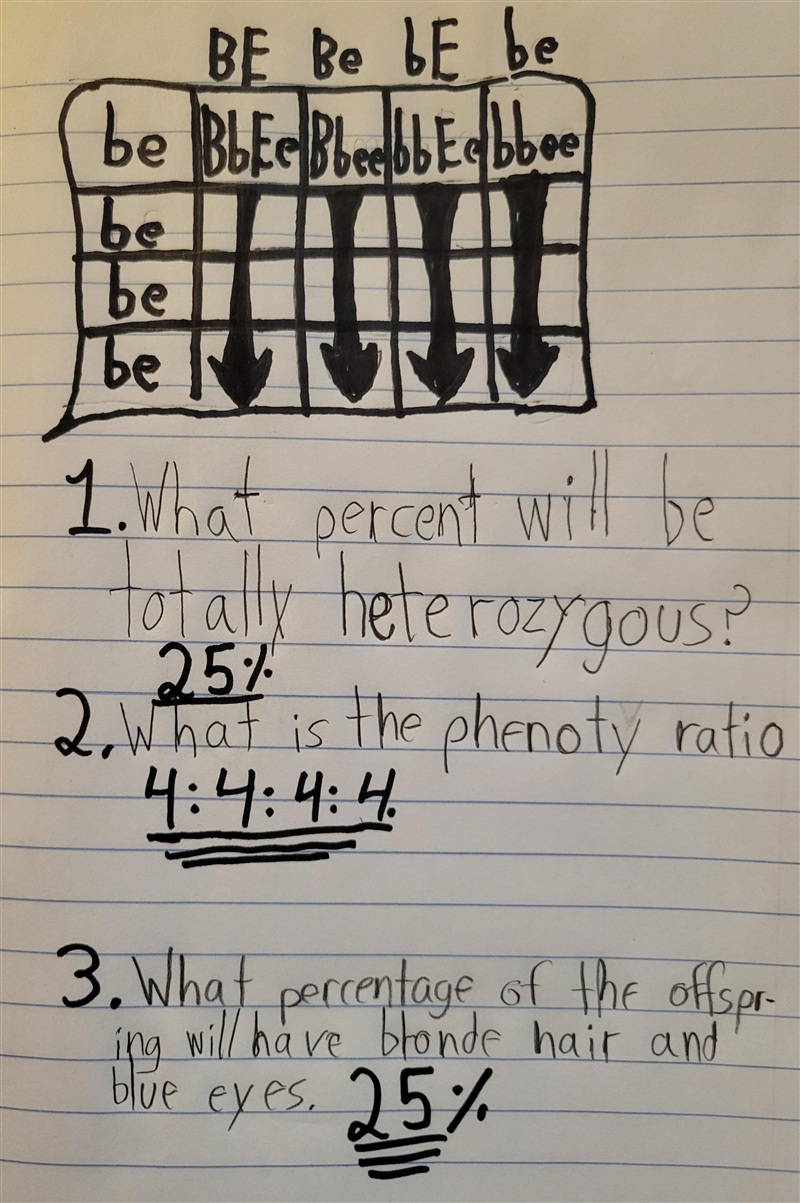 BE Be bE be
be BbEe Bbee bbEe bbee
be
be
be
1. What percent will be
totally heterozygous?
25%
2. What is the phenoty ratio
4:4:4:4.
3. What percentage of the offspr-
ing will have blonde hair and
blue eyes. 25%